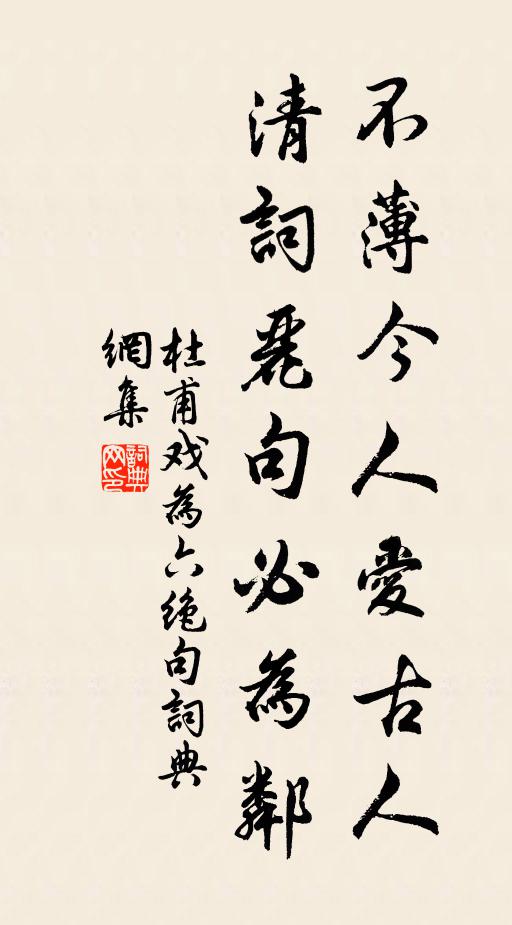 不薄今人愛古人
清詞麗句必為鄰
杜甫戏為六绝句詞典
網集
詞典
网印